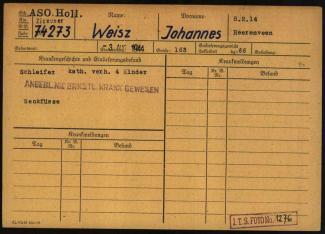 ASO. Holl.
Zigeuner
74273
Name:
Weisz
Vorname:
Johannes
8.2.14
Heerenveen
3. AUG. 1944
Größe: 163
kg: 66
Krankengeschichte und Einlieferungsbefund
Schleifer kath. verh. 4 Kinder
ANGEBL. NIE ERNSTL. KRANK GEWESEN
Senkfüsse
Krankmeldungen
Krankmeldungen
Tag
Befund
Tag
Befund
I.T.S. FOTO No. 1276